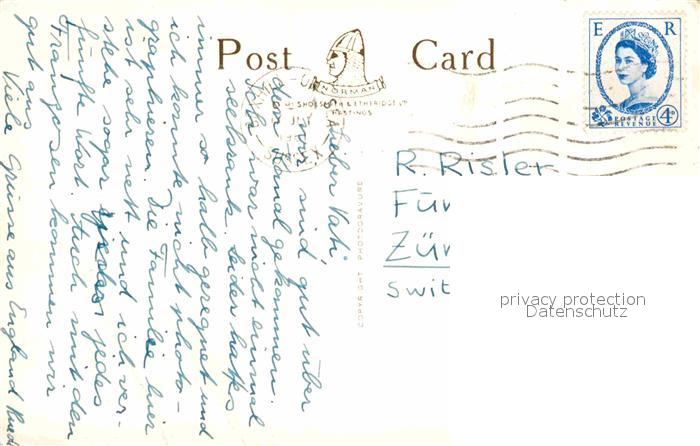 Post Card
NORMAN
SHOESMITH & ETHERIDGE LTD
HASTINGS
E R
POSTAGE
REVENUE
4D
COPYRIGHT PHOTOGRAVURE
Lieber Vati.
wir sind gut über
den Kanal gekommen.
Jole war nicht einmal
seekrank. Leider hatts
immer so halb geregnet und
ich konnte nicht photo-
graphieren. Die Familie hier
ist sehr nett und ich ver-
stehe sogar jedes
fünfte Wort. Auch mit den
Franzosen kommen wir
gut aus.
Viele Grüsse aus England Ruedi
R. Risler
Für
Zür
Swit
privacy protection
Datenschutz